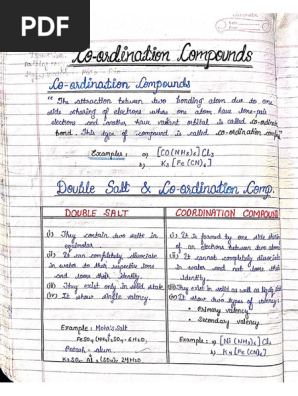 PDF
Co-ordination Compounds
Co-ordination Compounds
"The attraction between two bonding atom due to one
side sharing of electrons where one atom have lone-pair
electrons and another have vacant orbital is called co-ordinate
bond. This type of compound is called co-ordination comp."
Examples : a) [CO(NH3)6]Cl3
b) K4[Fe(CN)6]
Double Salt & Co-ordination Comp.
DOUBLE SALT
COORDINATION COMPOUND
(i) They contain two salts in
equimolar
(ii) It can completely dissociate
in water to their respective ions
and loose their identity.
(iii) They exist only in solid state
(iv) It show single valency.
Example : Moha's Salt
FeSO4 (NH4)2SO4 . 6H2O,
Potash - alum
K2SO4 Al2(SO4)3 24H2O.
(i) It is formed by one side share
of an electrons between two atoms
(ii) It cannot completely dissociate
in water and not lose their
identity.
(iii) They exist in solid as well as liquid
(iv) It show two types of valency:
• Primary valency
• Secondary valency
Example : a) [Ni(NH3)6]Cl
b) K4[Fe(CN)6]